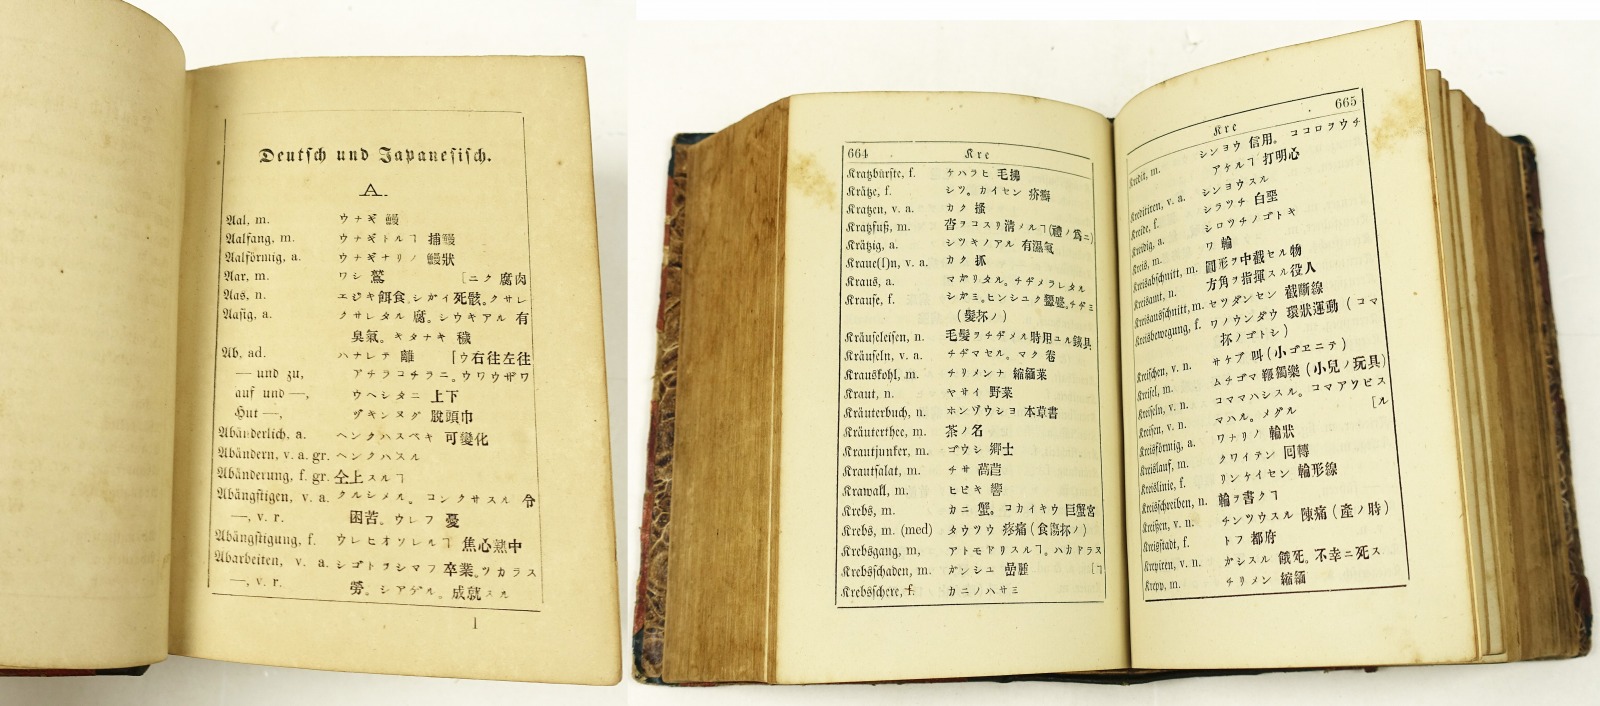 Deutsch und Japanesisch.
A.
Aal, m. ウナギ 鰻
Aalfang, m. ウナギトルヿ 捕鰻
Aalförmig, a. ウナギナリノ 鰻狀
Aar, m. ワシ 鷲 [ニク 腐肉
Aas, n. エジキ 餌食。シガイ 死骸。クサレ
Aasig, a. クサレタル 腐。シウキアル 有
臭氣。キタナキ 穢
Ab, ad. ハナレテ 離 [ウ右往左往
— und zu, アチラコチラニ。ウワウザワ
auf und —, ウヘシタニ 上下
Hut —, ヅキンヌグ 脫頭巾
Abänderlich, a. ヘンクハスベキ 可變化
Abändern, v. a. gr. ヘンクハスル
Abänderung, f. gr. 仝上スルヿ
Abängstigen, v. a. クルシメル。コンクサスル 令
—, v. r. 困苦。ウレフ 憂
Abängstigung, f. ウレヒオソレルヿ 焦心熱中
Abarbeiten, v. a. シゴトヲシマフ 卒業。ツカラス
—, v. r. 勞。シアゲル。成就スル
1
664 Kre
Kratzbürste, f. ケハラヒ 毛拂
Krätze, f. シツ。カイセン 疥癬
Kratzen, v. a. カク 搔
Kratzfuß, m. 沓ヲコスリ清ノルヿ(禮ノ爲ニ)
Krätzig, a. シツキノアル 有濕氣
Kraue(l)n, v. a. カク 抓
Kraus, a. マガリタル。チヂメラレタル
Krause, f. シガミ。ヒンシュク 顰蹙。チヂミ
(髮抔ノ)
Kräuseleisen, n. 毛髮ヲチヂメル時用ユル鐵具
Kräuseln, v. a. チヂマセル。マク 卷
Krauskohl, m. チリメンナ 縮緬菜
Kraut, n. ヤサイ 野菜
Kräuterbuch, n. ホンゾウショ 本草書
Kräuterthee, m. 茶ノ名
Krautjunker, m. ゴウシ 鄕士
Krautsalat, m. チサ 萵苣
Krawall, m. ヒビキ 響
Krebs, m. カニ 蟹。コカイキウ 巨蟹宮
Krebs, m. (med) タウツウ 疼痛(食傷抔ノ)
Krebsgang, m, アトモドリスルヿ。ハカドラス
Krebsschaden, m. ガンシュ 嵒腫 [ヿ
Krebsschere, f. カニノハサミ
Kre 665
Kredit, m. シンヨウ 信用。ココロヲウチ
アケルヿ 打明心
Kreditiren, v. a. シンヨウスル
Kreide, f. シラツチ 白堊
Kreidig, a. シロツチノゴトキ
Kreis, m. ワ 輪
Kreisabschnitt, m. 圓形ヲ中截セル物
Kreisamt, n. 方角ヲ指揮スル役人
Kreisausschnitt, m. セツダンセン 截斷線
Kreisbewegung, f. ワノウンダウ 環狀運動(コマ
抔ノゴトシ)
Kreischen, v. n. サケブ 叫(小ゴエニテ)
Kreisel, m. ムチゴマ 鞭獨樂(小兒ノ玩具)
Kreiseln, v. n. コママハシスル。コマアソビス
Kreisen, v. n. マハル。メグル [ル
Kreisförmig, a. ワナリノ 輪狀
Kreislauf, m. クワイテン 回轉
Kreislinie, f. リンケイセン 輪形線
Kreisschreiben, n. 輪ヲ書クヿ
Kreißen, v. n. チンツウスル 陳痛(產ノ時)
Kreisstadt, f. トフ 都府
Krepiren, v. n. ガシスル 餓死。不幸ニ死ス
Krepp, m. チリメン 縮緬